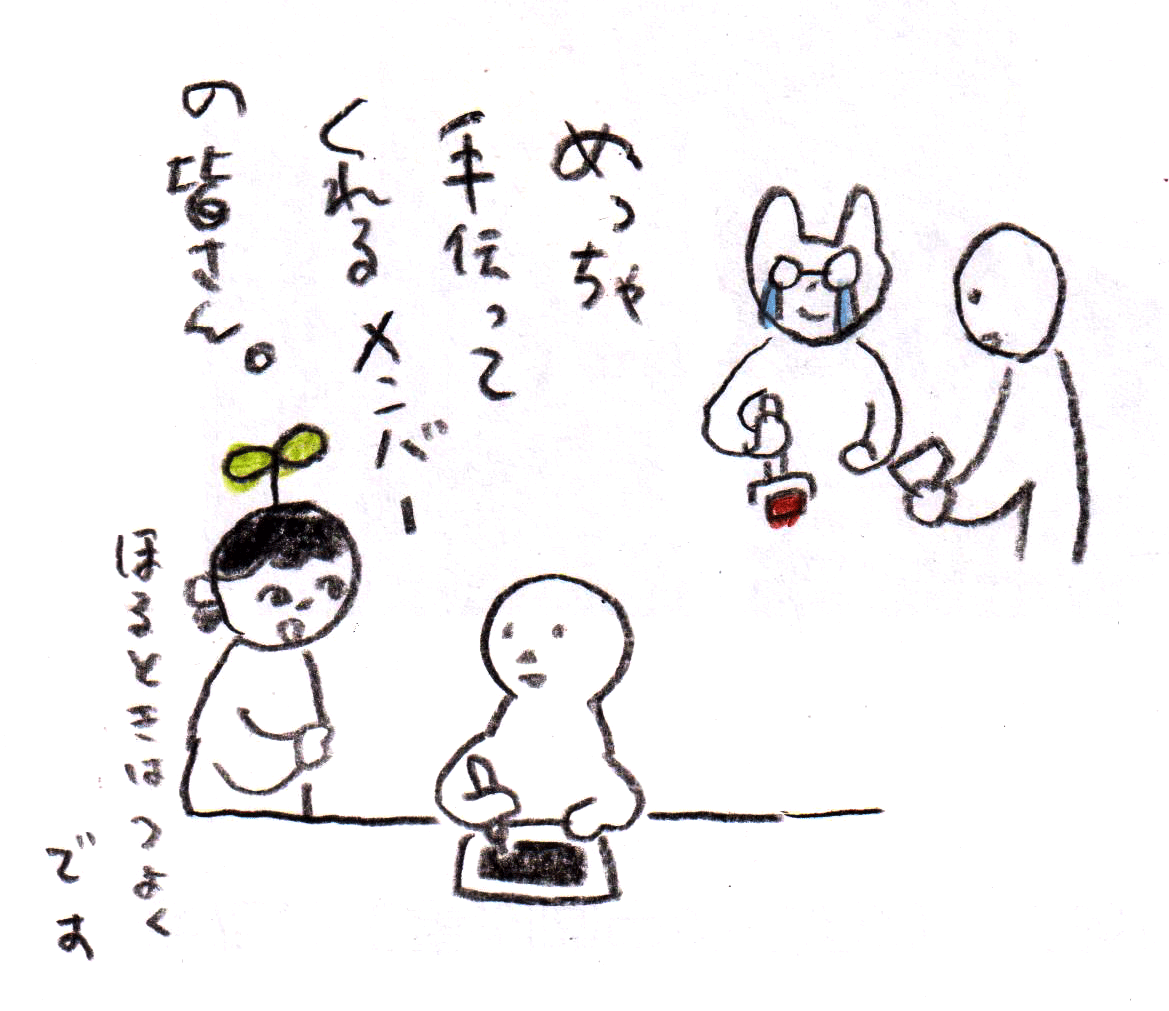 めっちゃ
手伝って
くれるメンバー
の皆さん。
ほるときはつよく
です